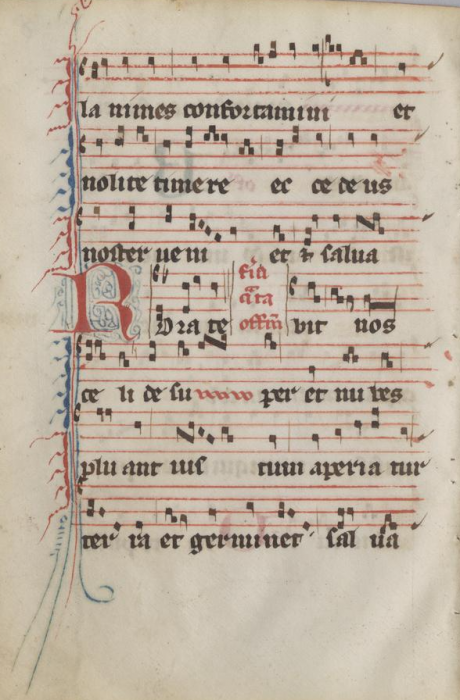 la nimes confortamini et
nolite timere ec ce de us
noster ueni et & salua
Rora te vit nos
feria
q̄rta
offm̄
ce li de su per et nu bes
plu ant ius tum aperia tur
ter ra et germinet sal ua